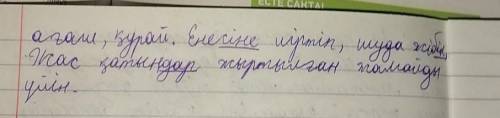 ЕСТЕ САҚТА!
ағаш, құрай. Енесіне иіртіп, шуда жібін,
Жас қатындар жыртылған жамайды
үйін.